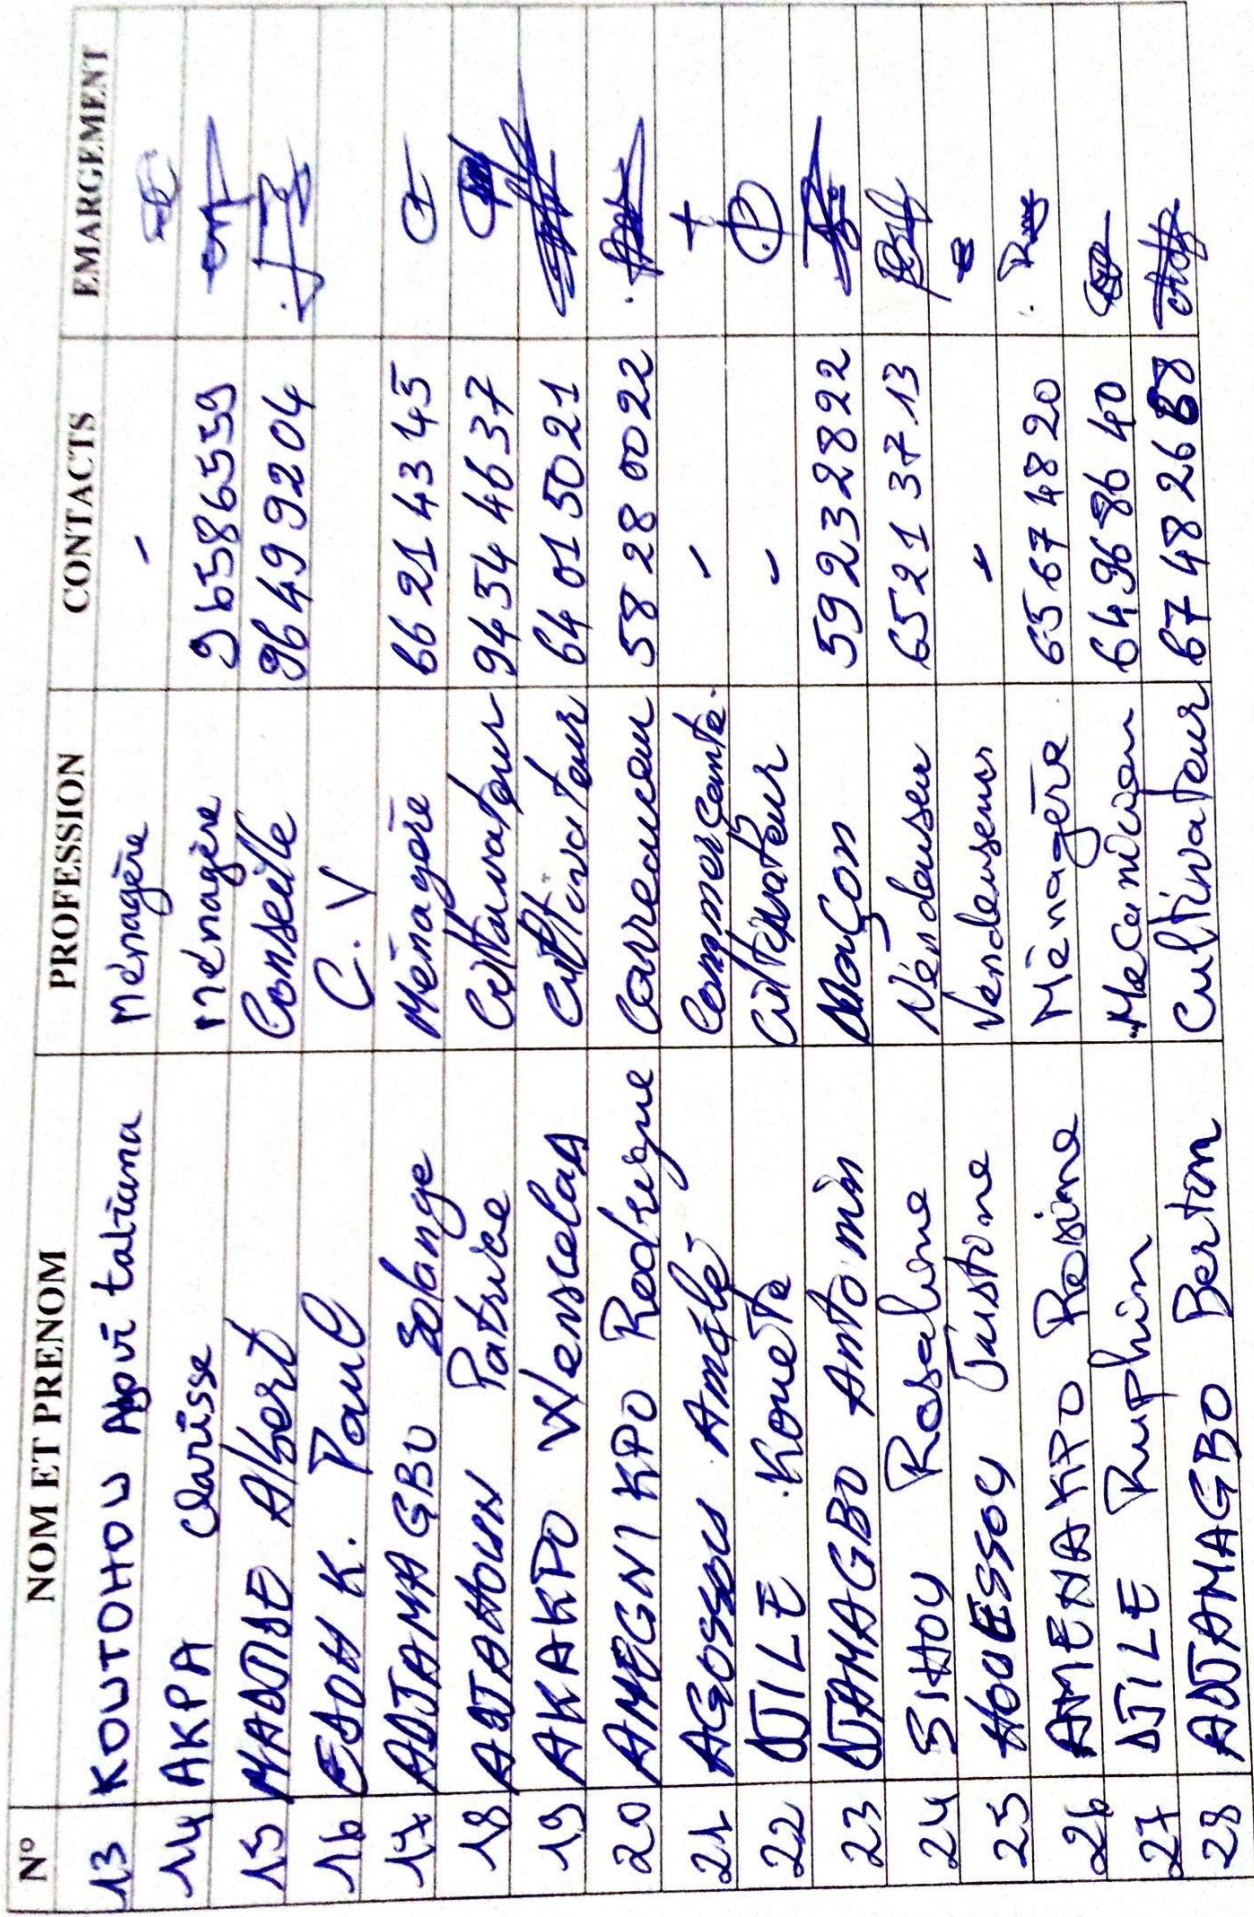 N° NOM ET PRENOM PROFESSION CONTACTS EMARGEMENT
13 KOUTOHOU Apvi tatiana Ménagère -
14 AKPA Clarisse Ménagère 96586559
15 MADJE Albert Conseille 96499204
16 EDOH K. Paul C.V
17 ADJAMAGBO Solange Ménagère 66 21 43 45
18 ADJAHOUN Patrice Cultivateur 94 54 46 37
19 AKAKPO Wenscelas Cultivateur 64 01 50 21
20 AMEGNIKPO Rodrigue Carreauceur 58 28 00 22
21 AGOSSOU Amélé Commerçante. -
22 DJILE Kouéta Cultivateur -
23 DJAMAGBO Antonin Maçon 59232822
24 SIHOU Rosaline Véndeuseur 6521 37.13
25 HOUESSOU Justine Vendeuseur -
26 AMENAKPO Rosine Ménagère 65 67 48 20
27 DJILE Ruphin Mecanicien 64 96 86 40
28 ADJAMAGBO Berton Cultivateur 67 48 26 88